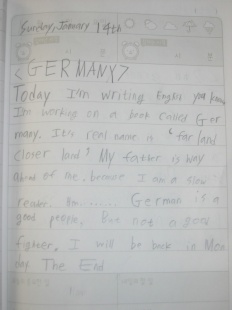 Sunday, January 14th
<GERMANY>
Today I'm writing English you know
I'm working on a book called Ger
many. It's real name is "far land
closer land" My father is way
ahead of me, because I am a slow
reader. Hm........ German is a
good people, But not a good
fighter. I will be back in Mon
day. The End